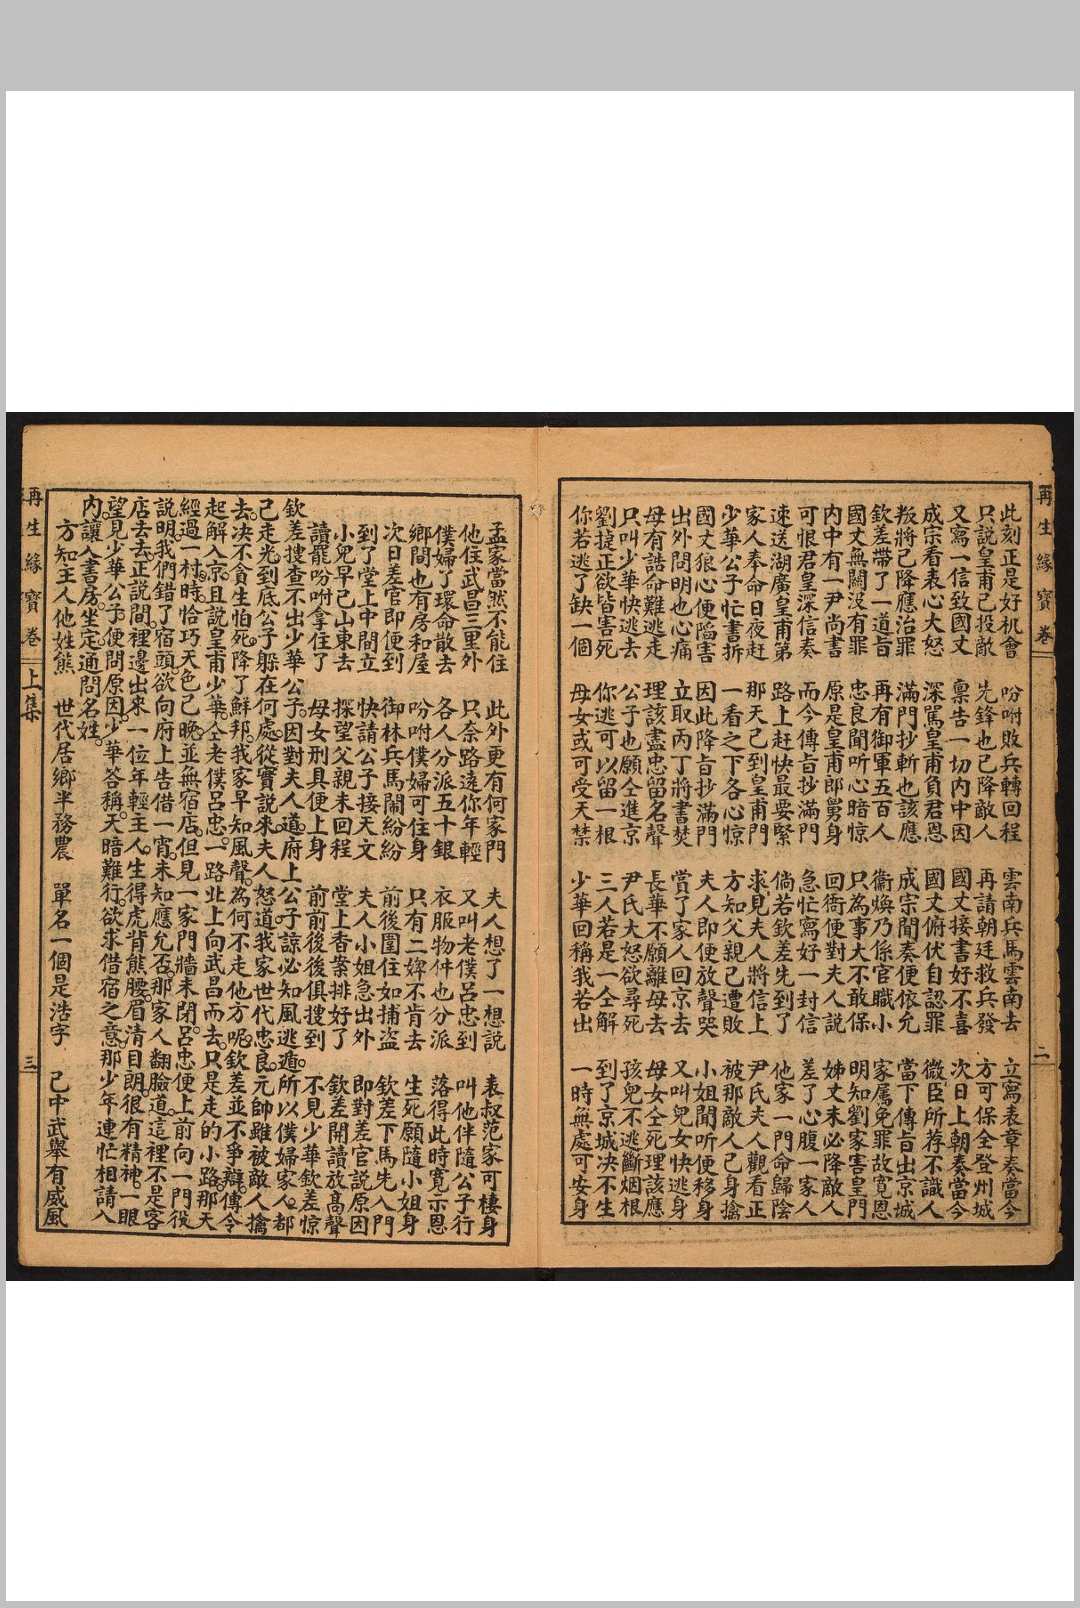 再生緣寶卷
二
此刻正是好机會　吩咐敗兵轉回程　雲南兵馬雲南去　立寫表章奏當今
只說皇甫已投敵　先鋒也已降敵人　再請朝廷救兵發　方可保全登州城
又寫一信致國丈　禀告一切內中因　國丈接書好不喜　次日上朝奏當今
成宗看表心大怒　深罵皇甫負君恩　國丈俯伏自認罪　微臣所荐不識人
叛將已降應治罪　滿門抄斬也該應　成宗聞奏便依允　當下傳旨出京城
欽差帶了一道旨　再有御軍五百人　衞煥乃係官職小　家属免罪故寬恩
國丈無關沒有罪　忠良聞听心暗惊　只為事大不敢保　明知劉家害皇門
內中有一尹尚書　原是皇甫郎舅身　回衙便對夫人說　姊丈未必降敵人
可恨君皇深信奏　而今傳旨抄滿門　急忙寫好一封信　差了心腹一家人
速送湖廣皇甫第　路上赶快最要緊　倘若欽差先到了　他家一門命歸陰
家人奉命日夜赶　那天已到皇甫門　求見夫人將信上　尹氏夫人觀看正
少華公子忙書拆　一看之下各心惊　方知父親已遭敗　被那敵人已身擒
國丈狼心便陷害　因此降旨抄滿門　夫人即便放聲哭　小姐聞听便移身
出外問明也心痛　立取丙丁將書焚　賞了家人回京去　又叫兒女快逃身
母有誥命難逃走　理該盡忠留名聲　長華不願離母去　母女仝死理該應
只叫少華快逃去　公子也願仝進京　尹氏大怒欲尋死　孩兒不逃斷烟根
劉捷正欲皆害死　你逃可以留一根　三人若是一仝解　到了京城决不生
你若逃了缺一個　母女或可受天禁　少華回稱我若出　一時無處可安身
孟家當然不能住　此外更有何家門　夫人想了一想說　表叔范家可棲身
他住武昌三里外　只奈路遠你年輕　又叫老僕呂忠到　叫他伴隨公子行
僕婦了環命散去　各人分派五十銀　衣服物件也分派　落得此時寛示恩
鄉間也有房和屋　吩咐僕婦可住身　只有二婢不肯去　生死願隨小姐身
次日差官即便到　御林兵馬鬧紛紛　前後圍住如捕盜　欽差下馬先入門
到了堂上中間立　快請公子接天文　夫人小姐急出外　即對差官說原因
小兒早已山東去　探望父親未回程　堂上香案排好了　欽差開讀放高聲
讀罷吩咐拿住了　母女刑具便上身　前前後後俱搜到　不見少華欽差惊
欽差搜查不出少華公子。因對夫人道。府上公子諒必知風逃遁。所以僕婦家人。都
已走光到底公子躲在何處。從實說來。夫人怒道我家世代忠良。元帥雖被敵人擒
去。决不貪生怕死。降了鮮邦。我家早知風聲。為何不走他方呢。欽差並不爭辯。傳令
起解入京。且說皇甫少華。仝老僕呂忠。一路北上向武昌而去。只是走的小路。那天
經過一村。時恰巧天色已晚。並無宿店。但見一家門牆未閉。呂忠便上前向一門役
說明。我們錯了宿頭欲向府上告借一宵。未知應允否。那家人翻臉道。這裡不是客
店去去。正說間。裡邊出來一位年輕主人。生得虎背熊腰。眉清目朗。很有精神。一眼
望見少華公子。便問原因。少華答稱。天暗難行。欲求借宿之意。那少年連忙相請入
內。讓入書房。坐定。通問名姓。
方知主人他姓熊　世代居鄉半務農　單名一個是浩字　己中武舉有威風
再生緣寶卷　上集
三